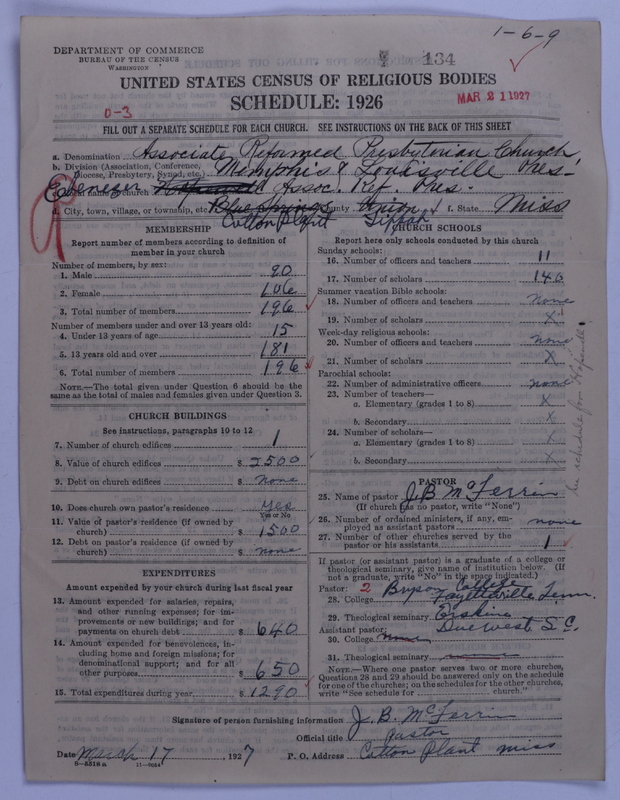 1-6-9
DEPARTMENT OF COMMERCE
BUREAU OF THE CENSUS
WASHINGTON
134
UNITED STATES CENSUS OF RELIGIOUS BODIES
SCHEDULE: 1926
MAR 21 1927
0-3
FILL OUT A SEPARATE SCHEDULE FOR EACH CHURCH. SEE INSTRUCTIONS ON THE BACK OF THIS SHEET
a. Denomination Associate Reformed Presbyterian Church
b. Division (Association, Conference, Diocese, Presbytery, Synod, etc.) Memphis & Louisville Pres-
Ebenezer Assoc. Ref. Pres.
d. City, town, village, or township, etc. Blue Springs County. Union f. State Miss
Cotton Plant Tippah
MEMBERSHIP
Report number of members according to definition of member in your church
Number of members, by sex:
1. Male 90
2. Female 106
3. Total number of members 196
Number of members under and over 13 years old:
4. Under 13 years of age 15
5. 13 years old and over 181
6. Total number of members 196
NOTE.—The total given under Question 6 should be the same as the total of males and females given under Question 3.
CHURCH BUILDINGS
See instructions, paragraphs 10 to 12
7. Number of church edifices 1
8. Value of church edifices $ 2500
9. Debt on church edifices $ None
10. Does church own pastor's residence? Yes
Yes or No
11. Value of pastor's residence (if owned by church) $ 1500
12. Debt on pastor's residence (if owned by church) $ None
EXPENDITURES
Amount expended by your church during last fiscal year
13. Amount expended for salaries, repairs, and other running expenses; for improvements or new buildings; and for payments on church debt $ 640
14. Amount expended for benevolences, including home and foreign missions; for denominational support; and for all other purposes $ 650
15. Total expenditures during year $ 1290
CHURCH SCHOOLS
Report here only schools conducted by this church
Sunday schools:
16. Number of officers and teachers 11
17. Number of scholars 140
Summer vacation Bible schools:
18. Number of officers and teachers none
19. Number of scholars X
Week-day religious schools:
20. Number of officers and teachers none
21. Number of scholars X
Parochial schools:
22. Number of administrative officers none
23. Number of teachers—
a. Elementary (grades 1 to 8) X
b. Secondary X
24. Number of scholars—
a. Elementary (grades 1 to 8) X
b. Secondary X
PASTOR
25. Name of pastor J. B. McFerrin
(If church has no pastor, write "None")
26. Number of ordained ministers, if any, employed as assistant pastors none
27. Number of other churches served by the pastor or his assistants 1
If pastor (or assistant pastor) is a graduate of a college or theological seminary, give name of institution below. (If not a graduate, write "No" in the space indicated.)
Pastor: 2 Bryson College
28. College Fayetteville Tenn.
29. Theological seminary Erskine
Due West S C.
Assistant pastor:
30. College
31. Theological seminary
NOTE.—Where one pastor serves two or more churches, Questions 28 and 29 should be answered only on the schedule for one of the churches; on the schedules for the other churches, write "See schedule for church."
Signature of person furnishing information J. B. McFerrin
Official title Pastor
Date March 17, 1927
P. O. Address Cotton Plant Miss
8-5518 a 11-9034